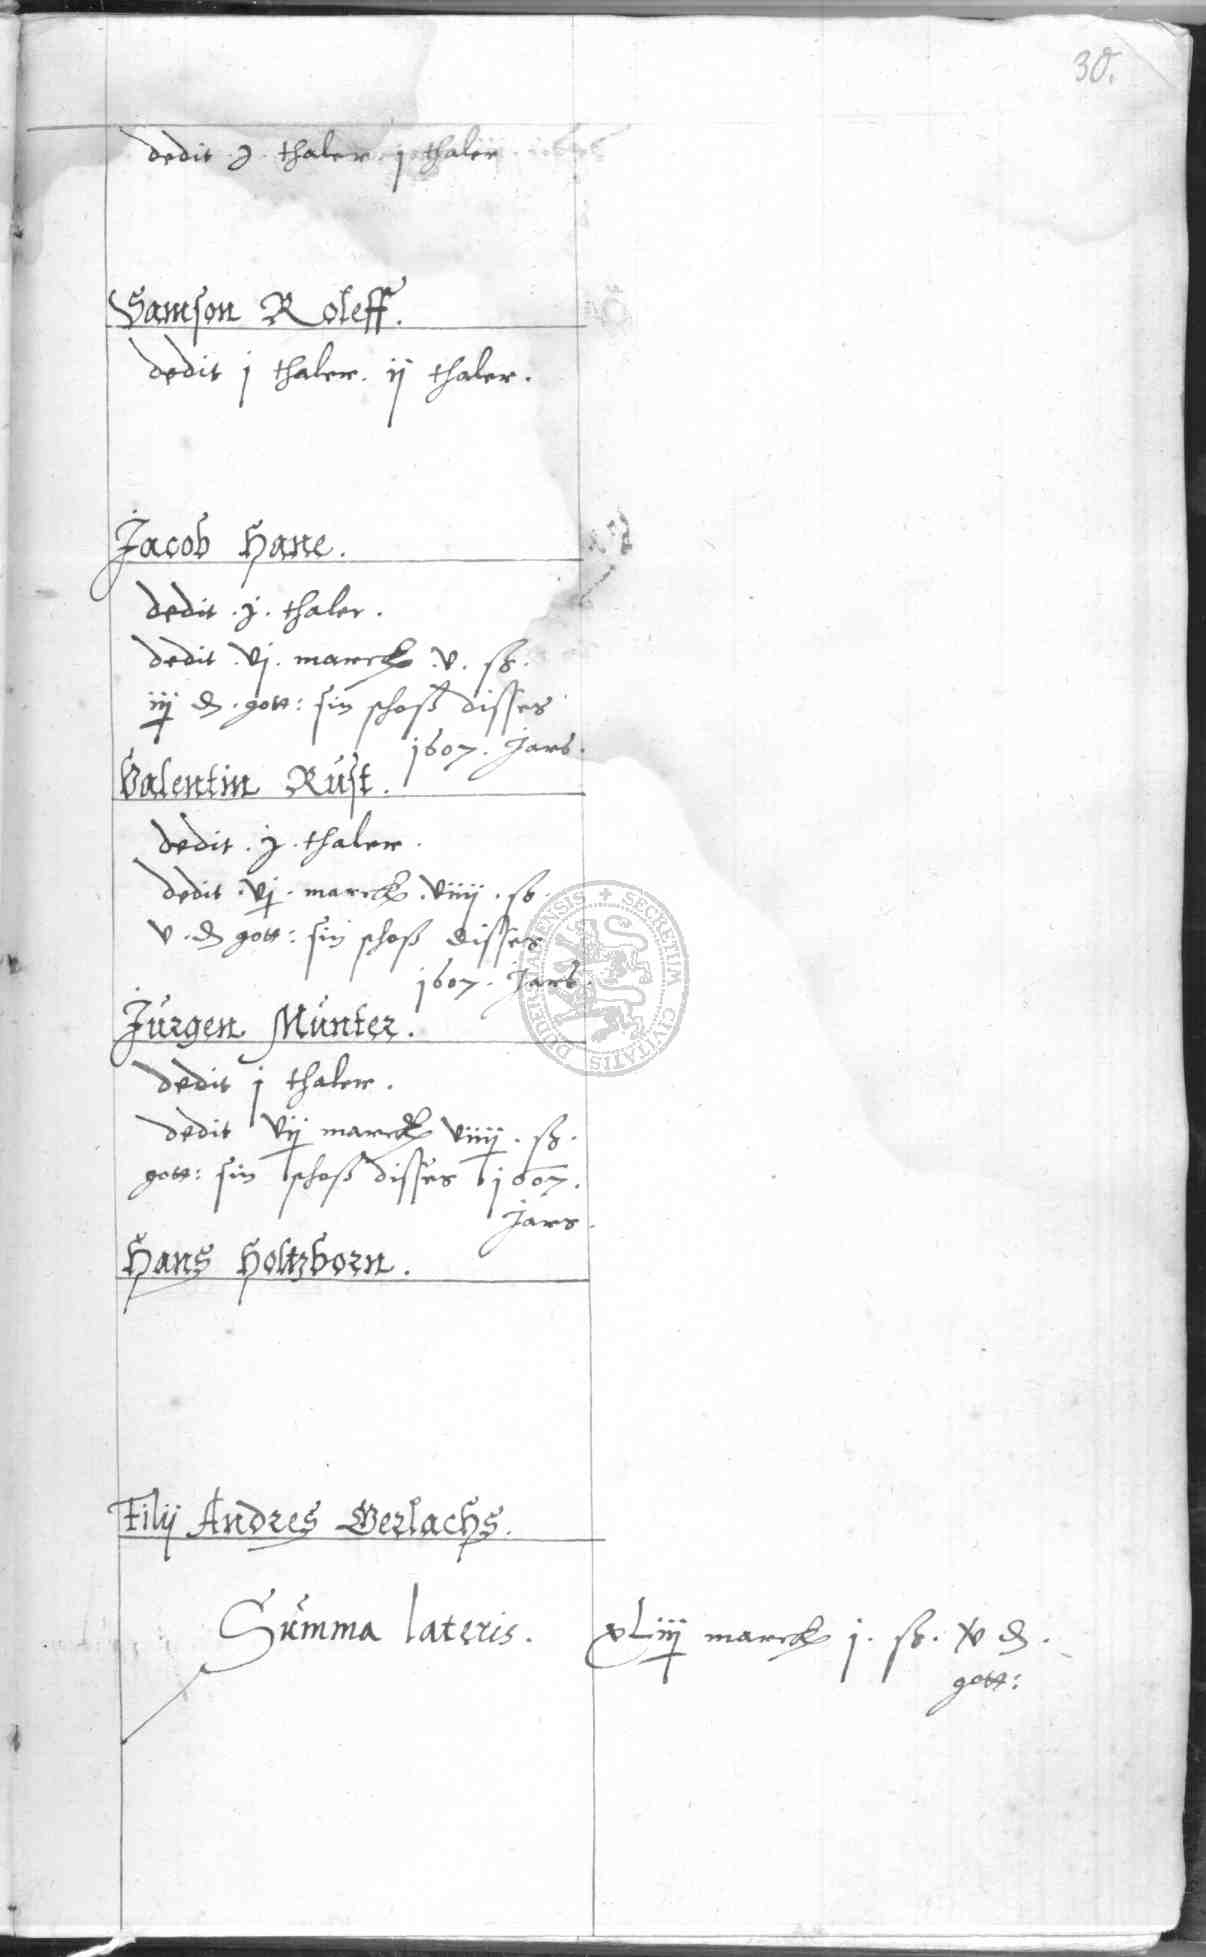 30.
dedit j thaler j thaler
Samson Roleff.
dedit j thaler. ij thaler.
Jacob Hane.
dedit . j . thaler.
dedit . vj . marck . v . ß.
iiij ₰ . gott: sin schoß disses
1607. Jars.
Valentin Rust.
dedit . j . thaler.
dedit . vj . marck . viiij . ß.
v . ₰ gott: sin schoß disses
1607. Jars.
Jürgen Munter.
dedit j thaler.
dedit vij marck viiij . ß.
gott: sin schoß disses 1607.
Jars.
Hans Holtzborn.
SECRETUM CIVITATIS DUDERSTADENSIS
Filij Andres Gerlachs.
Summa lateris. xLiiij marck j . ß. xv ₰.
gott: